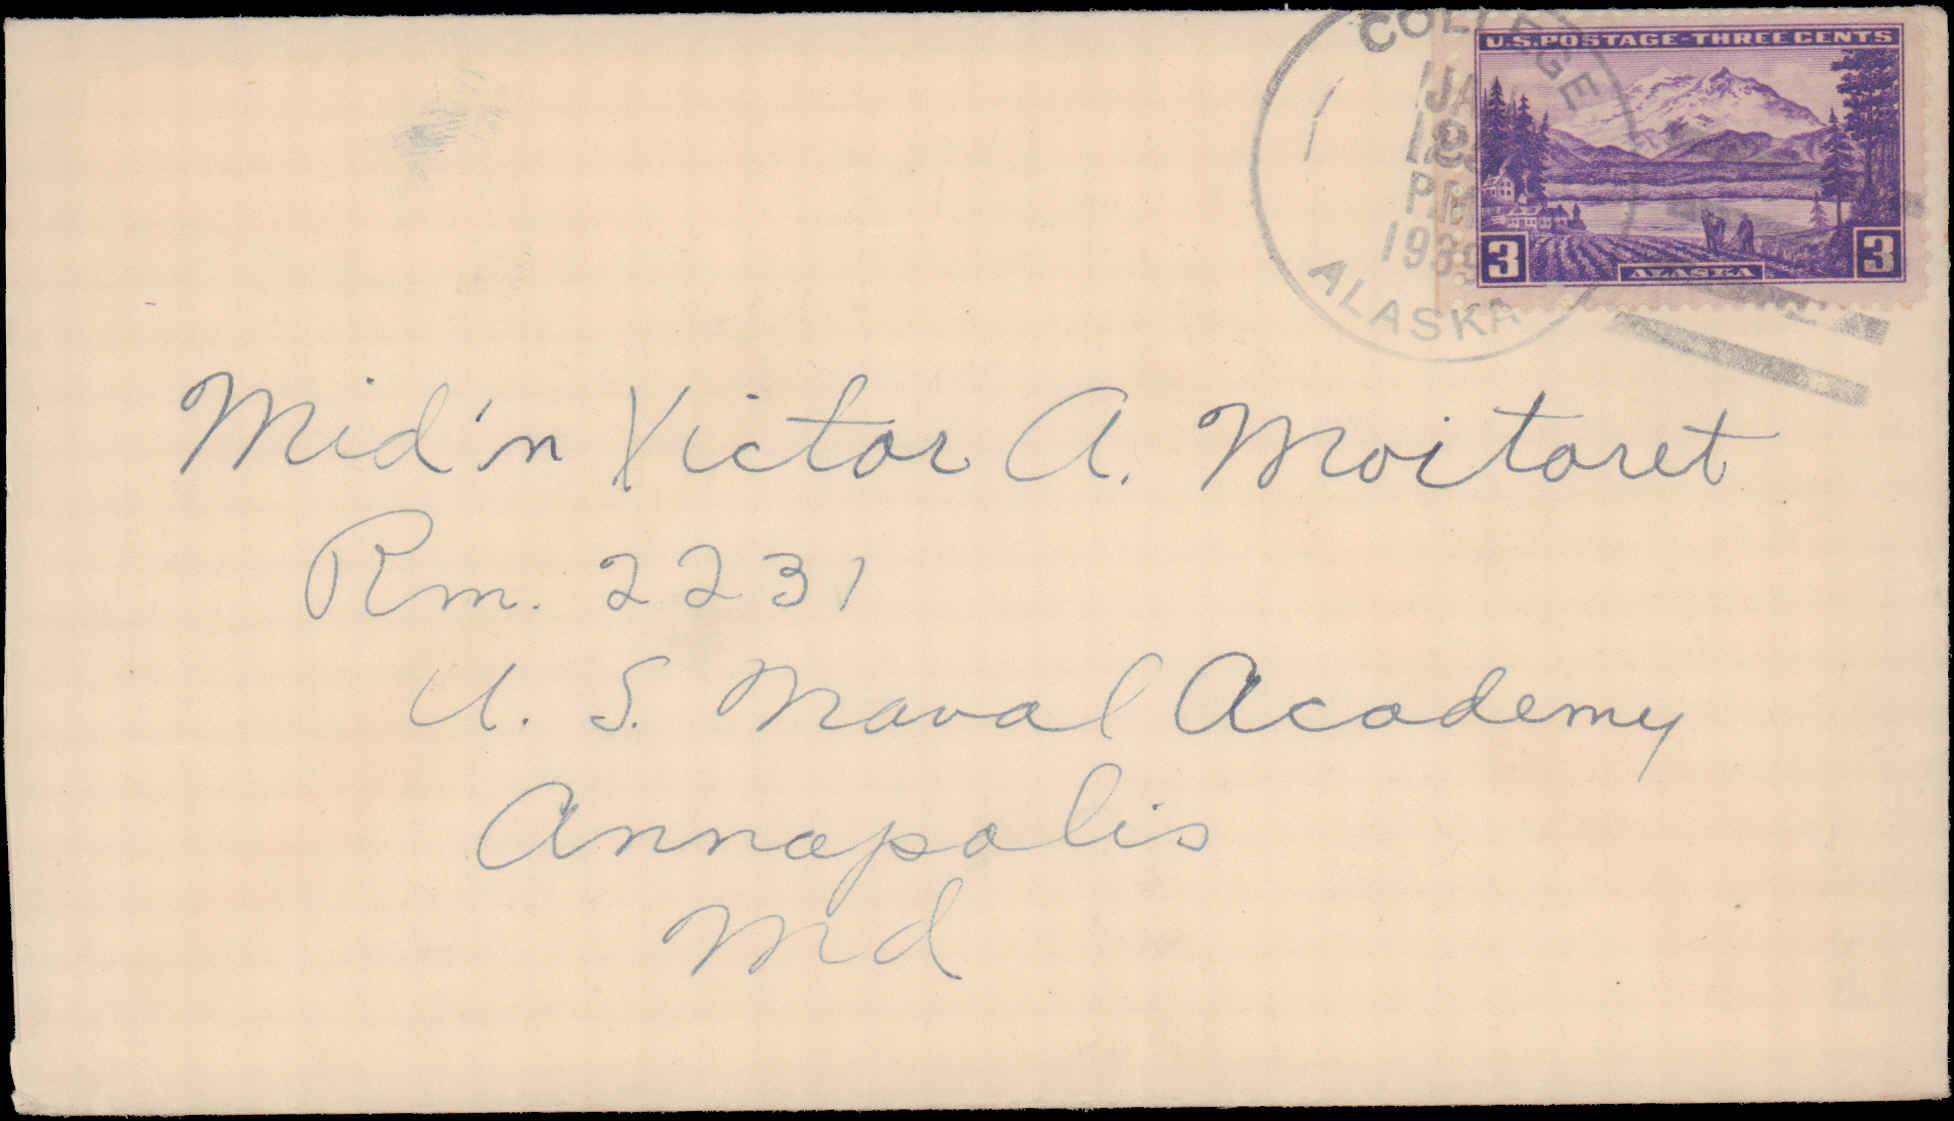 COLLEGE
ALASKA
JA
P.M
193
U.S.POSTAGE-THREE CENTS
3 ALASKA 3
Mid'n Victor A. Moitoret
Rm. 2231
U. S. Naval Academy
Annapolis
Md